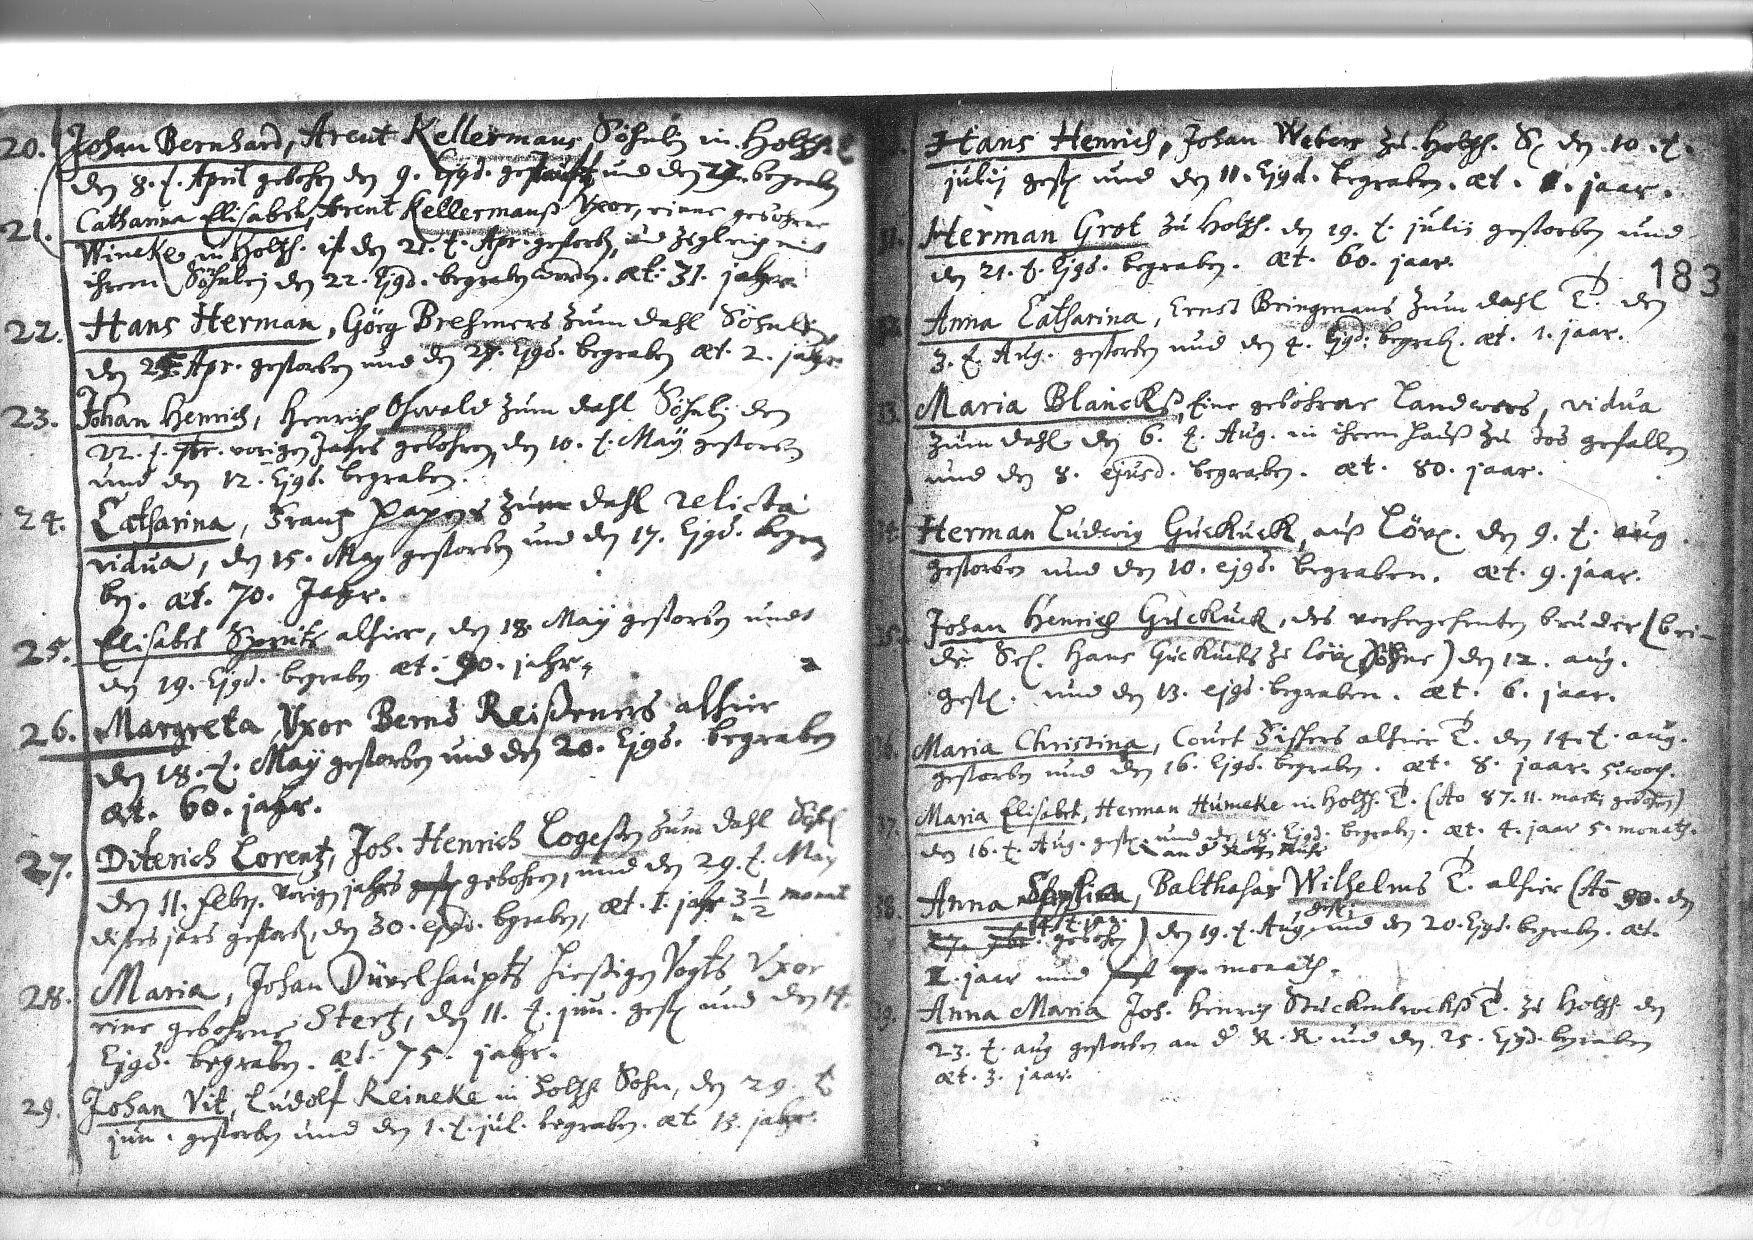 20. Johan Bernhard, Arent Kellermans Söhnlj in Holtzh.
den 8. t. April gebohrn den 9. Ejusd. getaufft, und den begraben
21. Catharina Elisabet, Arent Kellermanß Uxor, eine gebohrne
Wineke in Holtzh. ist den 21. t. Apr. gestorbn, und zugleich mit
ihrem Söhnlej den 22. Ejusd. begraben worden. æt. 31. jahr.
22. Hans Herman, Görg Brehmers zum dahl Söhnlej
den Apr. gestorben und den Ejusd. begraben æt. 2. jahr
23. Johan Henrich, Henrich Oswald zum dahl Söhnlj den
22. t. 7br. vorigen Jahrs gebohren, den 10. t. May gestorben
und den 12. Ejusd. begraben.
24. Catharina, Frantz Papens zum dahl relicta
vidua, den 15. May gestorben und den 17. Ejusd. begra
ben. æt. 70. Jahr.
25. Elisabet alhier, den 18 May gestorben undt
den 19. Ejusd. begraben æt. 90. jahr.
26. Margreta Uxor Bernd Reißeners alhier
den 18. t. May gestorben und den 20. Ejusd. begraben
æt. 60. jahr.
27. Diterich Lorentz, Joh. Henrich Logesen zum dahl Söhnl
den 11. Febr. vorign jahrs gebohren, und den 29. t. May
dises jars gestorb, den 30. ejusd. bgraben, æt. 1. jahr 3 1/2 monat
28. Maria, Johan Düvelhaupts hiesigen Vogts Uxor
eine gebohrne Stertz, den 11. t. jun. gest und den 14.
Ejusd. begraben. æt. 75. jahr.
29. Johan Vit, Ludolf Reineke in Holtzh Sohn, den 29. t
jun. gestorben und den 1. t. jul. begraben. æt 13. jahr.
Hans Henrich, Johan Webers zu Holtzh. S. den 10. t.
julij gest und den 11. Ejusd. begraben. æt. 1. jaar.
31. Herman Grot zu Holtzh. den 19. t. julii gestorben und
den 21. t. Ejusd. begraben. æt. 60. jaar.
183
32. Anna Catharina, Ernst Bringmans zum dahl T. den
3. t. Aug. gestorben und den 4. Ejusd. begrab. æt. 1. jaar.
33. Maria Blanckß, Eine gebohrne Landwers, vidua
zum dahl den 6. t. Aug. in ihrem hauß zu tod gefallen
und den 8. ejusd. begraben. æt. 80. jaar.
34. Herman Ludwig Guckuck, auß Löv. den 9. t. aug.
gestorben und den 10. ejusd. begraben. æt. 9. jaar.
35. Johan Henrich Guckuck, des vorhergehenten bruder (bei-
de Sel. Hans Guckucks zu Löv Söhne) den 12. aug.
gest. und den 13. ejusd. begraben. æt. 6. jaar.
36. Maria Christina, Court Zissers alhier T. den 14. t. aug.
gestorben und den 16. Ejusd. begraben. æt. 8. jaar. 5. woch.
37. Maria Elisabet, Herman Humeke in Holtzh. T. (Ao 87. 11. martij gebohrn)
den 16. t. Aug. gest und den 18. Ejusd. begraben. æt. 4. jaar 5. monath.
an d Rothn Ruhr
38. Anna Sophia, Balthasar Wilhelms T. alhier (Ao 90. den
gebohrn) den 19. t. Aug. gest. und den 20. Ejusd. begraben. æt.
1. jaar und 7. monath.
39. Anna Maria Joh. Henrich Stuckenbrockß T. zu Holtzh den
23. t. aug gestorben an d R. R. und den 25. Ejusd. begraben
æt. 3. jaar.